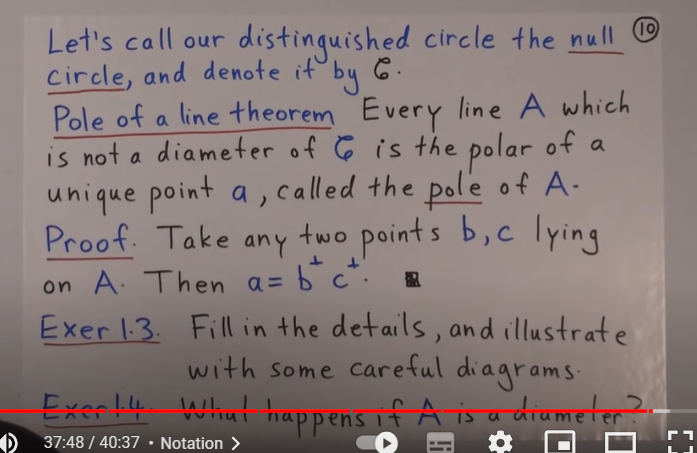 Let's call our distinguished circle the null ⑩
circle, and denote it by 𝒞.
Pole of a line theorem Every line A which
is not a diameter of 𝒞 is the polar of a
unique point a, called the pole of A.
Proof. Take any two points b, c lying
on A. Then a = b⊥c⊥. ■
Exer 1.3. Fill in the details, and illustrate
with some careful diagrams.
Exer 1.4. What happens if A is a diameter?
37:48 / 40:37 • Notation >